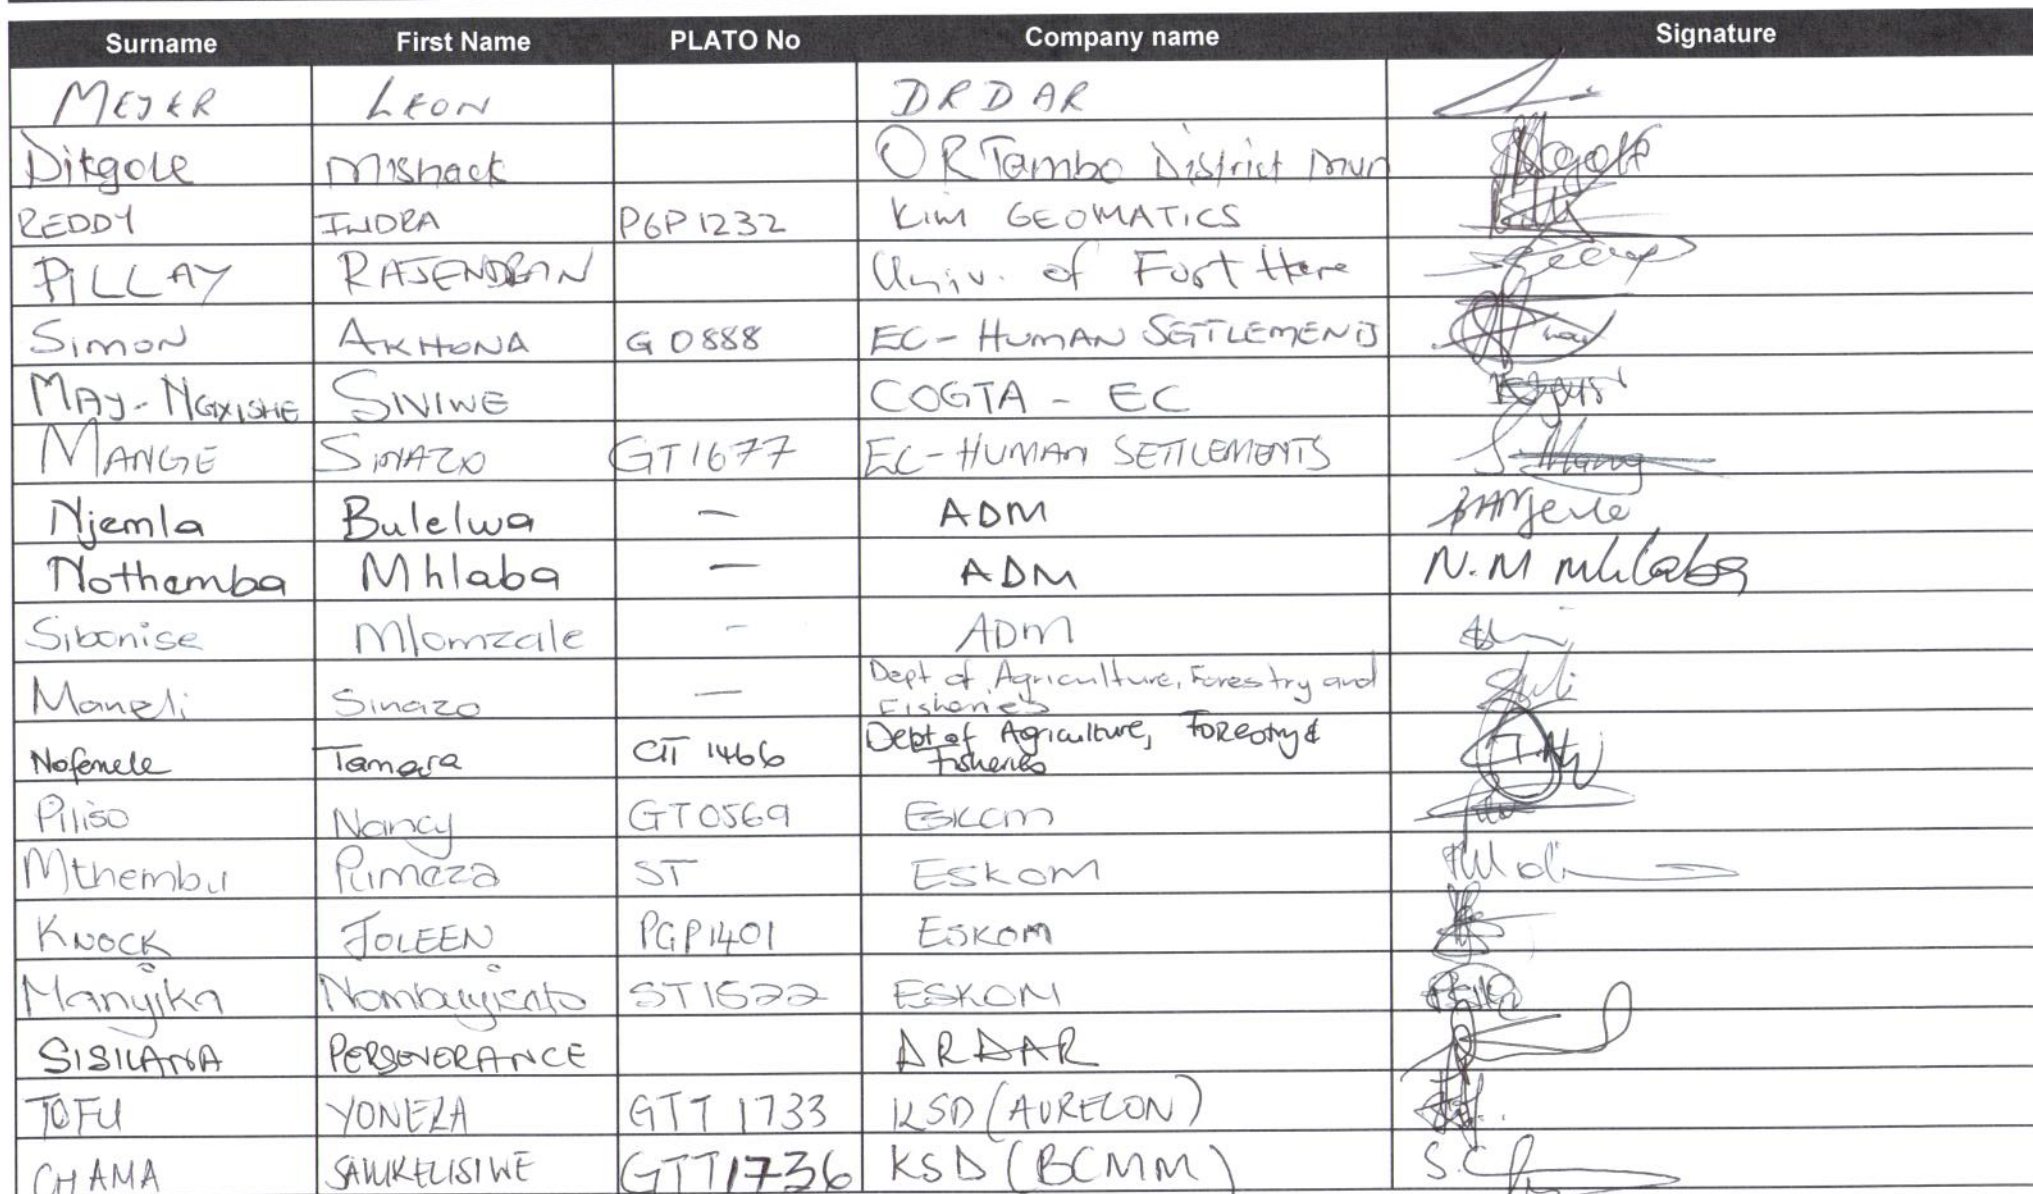 Surname First Name PLATO No Company name Signature
MEJER LEON DRDAR
Ditgole Mishack OR Tambo District Mun
REDDY INDRA PGP1232 Kim GEOMATICS
PILLAY RAJENDRAN Univ. of Fort Hare
Simon AKHONA G 0888 EC - HUMAN SETTLEMENTS
MAY-NGXISHE SIVIWE COGTA - EC
MANGE SINAZO GT1677 EC-HUMAN SETTLEMENTS
Njemla Bulelwa — ADM
Nothemba Mhlaba — ADM N.M mhlaba
Sibonise Mlomzale - ADM
Maneli Sinazo — Dept of Agriculture, Forestry and
Fisheries
Nofemele Tamara GT 1466 Dept of Agriculture, Forestry &
Fisheries
Piliso Nancy GT0569 Eskom
Mthembu Pumeza ST ESKOM
KNOCK JOLEEN PGP1401 ESKOM
Manyika ST1522 ESKOM
SISILANA PERSEVERANCE DRDAR
TOFU YONELA GTT 1733 KSD (AURECON)
CHAMA SAWKELISIWE GTT1736 KSD (BCMM)